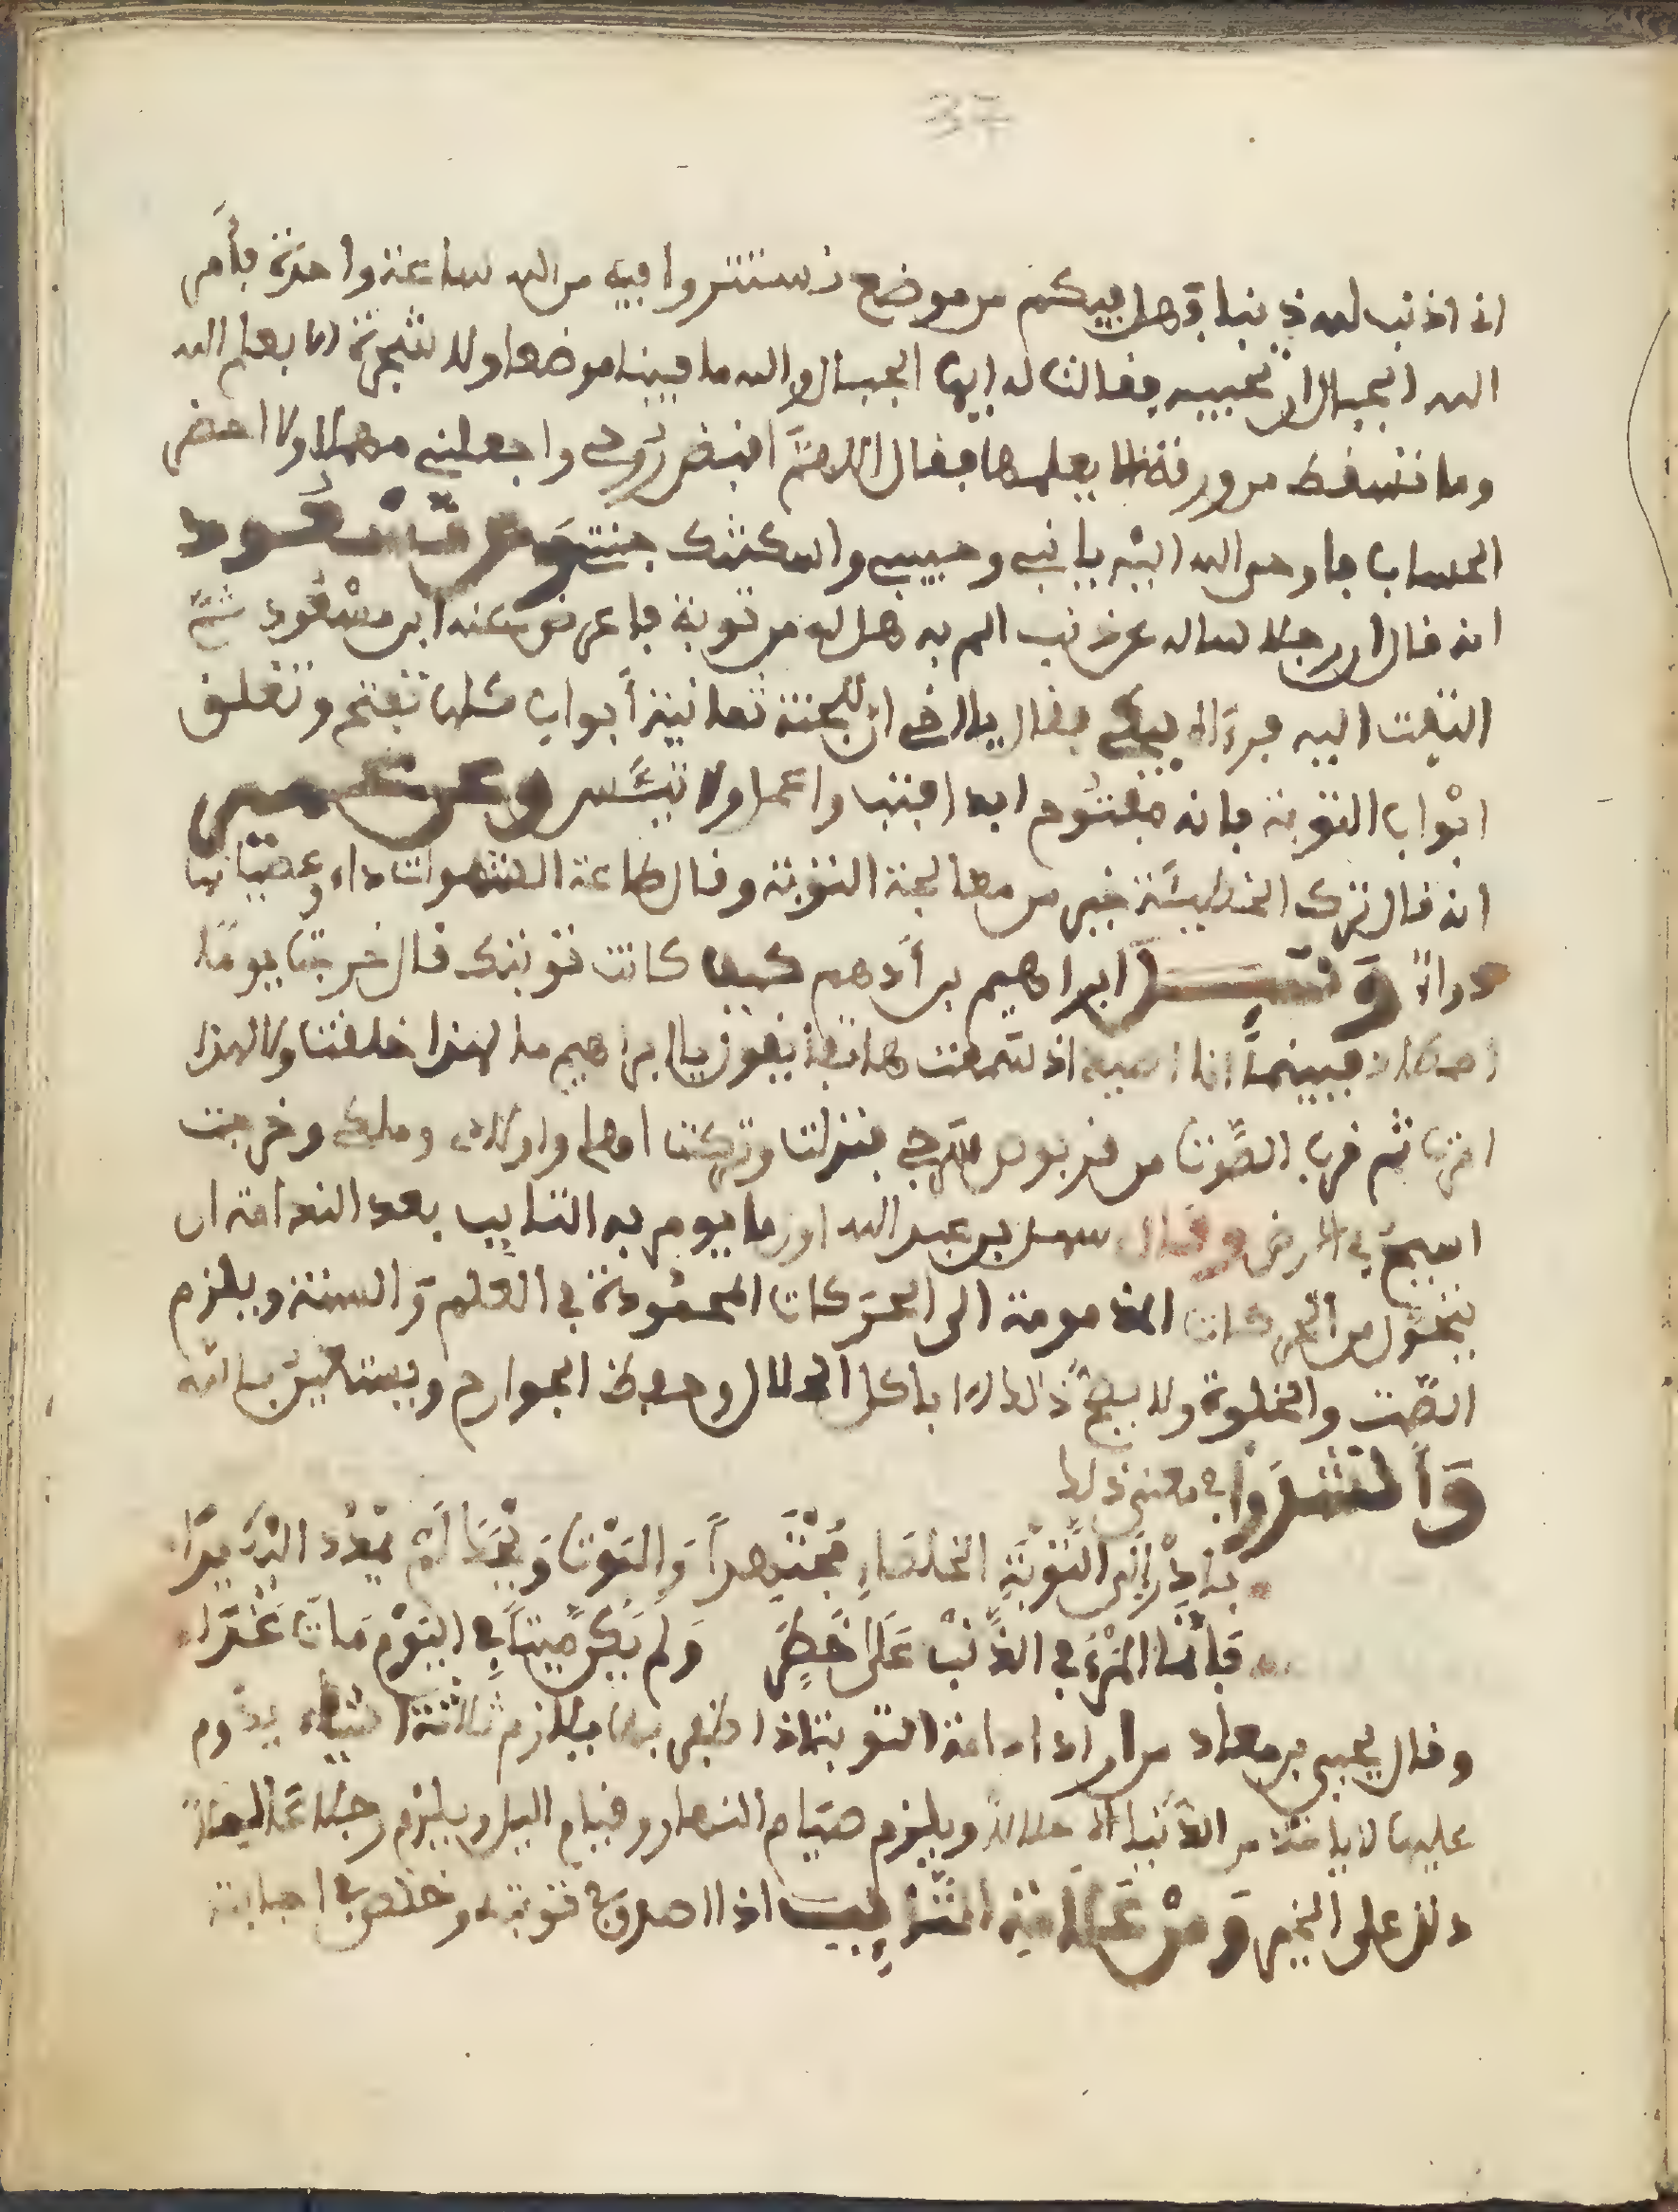 37
اذ اذنب لله ذنبا وهل فيكم من موضع نستتروا فيه من الله ساعة واحدة فأمر
الله الجبال ان تجيبه فقالت له ايها الجبال والله ما فينا موضعا ولا شجرة الا يعلم الله
وما تسقط من ورقة الا يعلمها فقال اللهم اقبض روحي واجعلني مهملا ولا احضر
الحساب فاوحى الله اليه يا نبي وحبيبي واسكنتك جنتي وعن مسعود
انه قال ان رجلا ساله عن ذنب الم به هل له من توبة فاعرض عنه ابن مسعود ثم
التفت اليه فرءاه يبكي فقال يا اخي ان للجنة ثمانية أبواب كلها تفتح وتغلق
ابواب التوبة فانه مفتوح ابدا واعمل ولا تيئس وعن
انه قال ترك الخطيئة خير من معالجة التوبة وقال طاعة الشهوات داء وعصيانها
دواء وقيل ابراهيم بن أدهم كيف كانت توبتك قال خرجت يوما
اصطاد فبينما انا اذ سمعت هاتفا يقول يا ابراهيم ما لهذا خلقت ولا لهذا
امرت ثم قرب الصوت من قربوس سرجي فنزلت وتركت اهلي واولادي وملكي وخرجت
اسيح في الارض وقال سهل بن عبد الله اول ما يومر به التايب بعد الندامة ان
يتحول من الحركات المذمومة الى الحركات المحمودة في العلم والسنة ويلزم
الصمت والخلوة ولا يصح ذلك الا باكل الحلال وحفظ الجوارح ويستعين بالله
وأنشدوا في معنى ذلك
بادر إلى التوبة الخلصاء مجتهدا والموت ويحك لم يمدد اليك يدا
فإنما المرء في الذنب على خطر ولم يكن ميتا في اليوم مات غدا
وقال يحيى بن معاد من اراد ادامة التوبة اذا ظفر بها فيلازم ثلاثة اشياء يدوم
عليها لا ياخذ من الدنيا الا حلالا ويلزم صيام النهار وقيام اليل ويلزم رجلا عالما
دله على الخير ومن علامة التايب اذا اصدق في توبته وخلص في اجابته